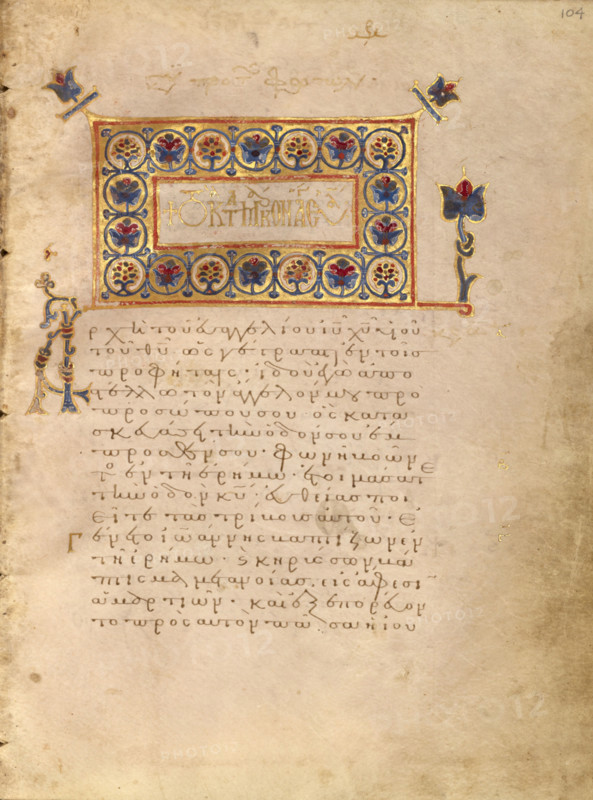 104
Ἀρχὴ τοῦ εὐαγγελίου ἰῦ χῦ υἱοῦ
τοῦ θῦ· ὡς γέγραπται ἐν τοῖς
προφήταις· ἰδοὺ ἐγὼ ἀπο
στέλλω τὸν ἄγγελόν μου πρὸ
προσώπου σου ὃς κατα
σκευάσει τὴν ὁδόν σου ἔμ
προσθέν σου· φωνὴ βοῶν
τος ἐν τῇ ἐρήμω· ἑτοιμάσατε
τὴν ὁδὸν κῦ· εὐθείας ποι
εῖτε τὰς τρίβους αὐτοῦ· Ἐ
γένετο ἰωάννης βαπτίζων ἐν
τῇ ἐρήμω· καὶ κηρύσσων βά
πτισμα μετανοίας εἰς ἄφεσι
ἁμαρτιῶν· καὶ ἐξεπορεύον
το πρὸς αὐτὸν πᾶσα ἡ ἰου